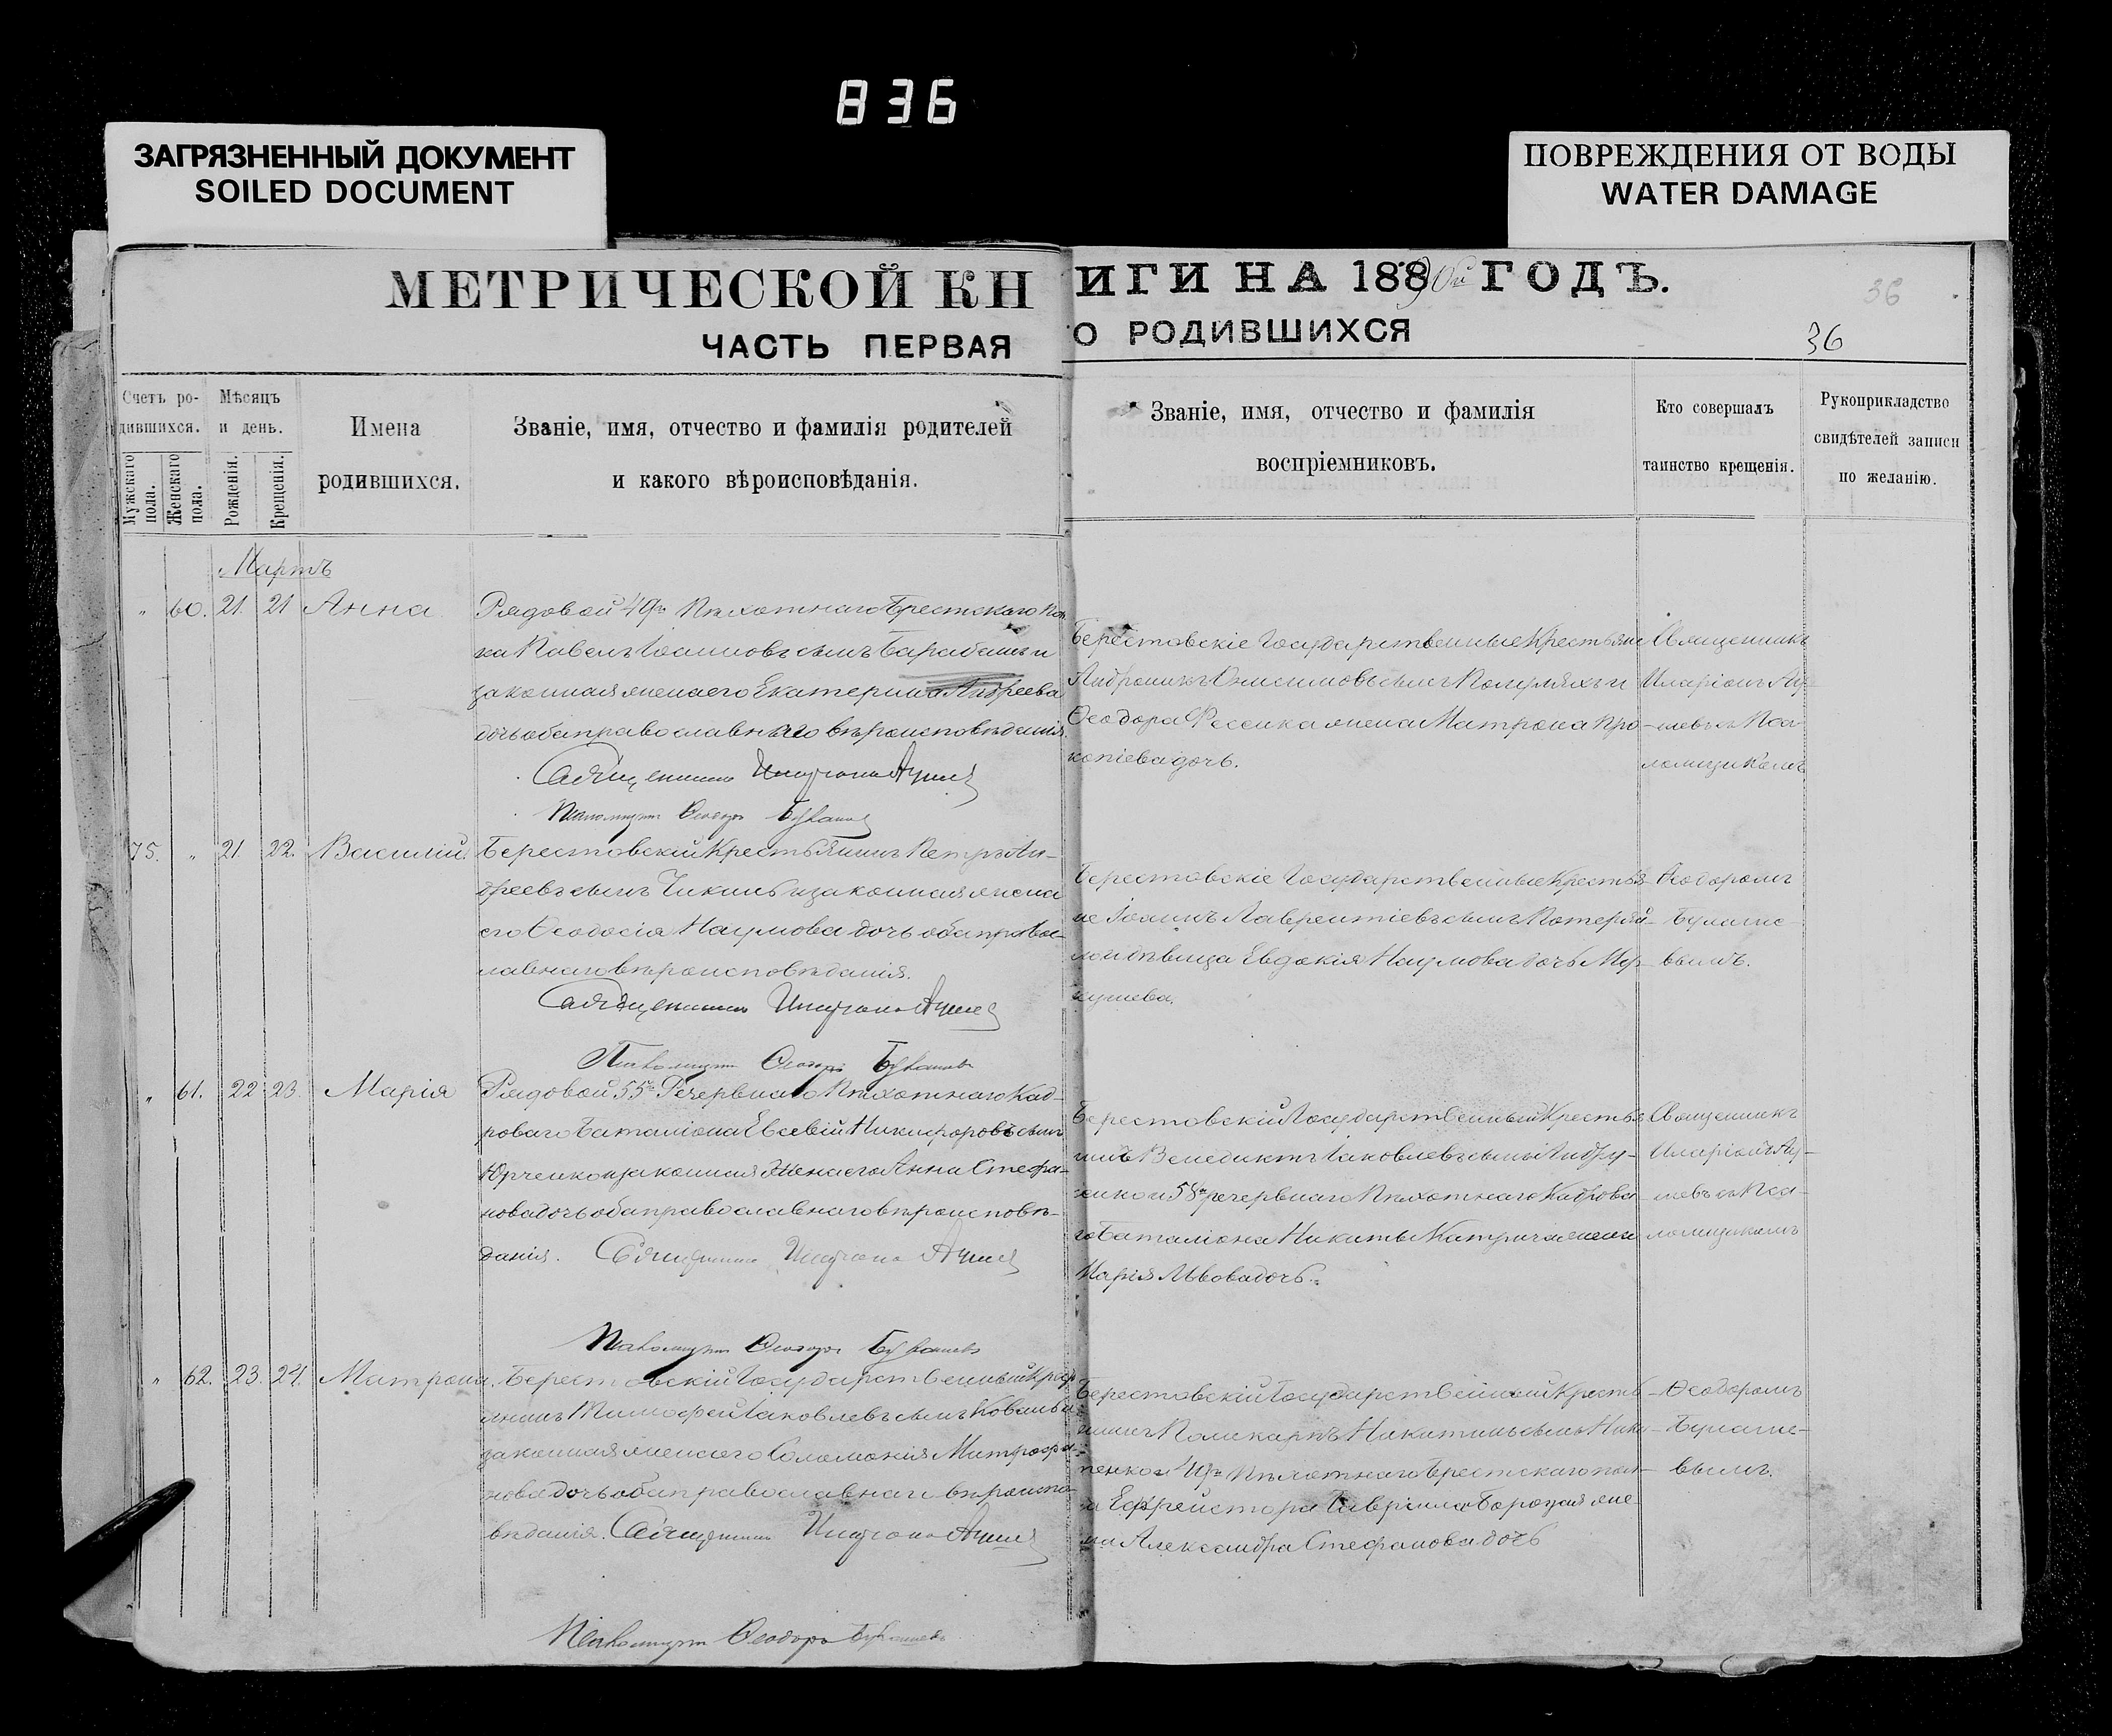 836
ЗАГРЯЗНЕННЫЙ ДОКУМЕНТ
SOILED DOCUMENT
ПОВРЕЖДЕНИЯ ОТ ВОДЫ
WATER DAMAGE
МЕТРИЧЕСКОЙ КНИГИ НА 1890й ГОДЪ.
36
ЧАСТЬ ПЕРВАЯ О РОДИВШИХСЯ
36
Счетъ родившихся.
Мужскаго пола.
Женскаго пола.
Мѣсяцъ и день.
Рожденія.
Крещенія.
Имена
родившихся.
Званіе, имя, отчество и фамилія родителей
и какого вѣроисповѣданія.
Званіе, имя, отчество и фамилія
воспріемниковъ.
Кто совершалъ
таинство крещенія.
Рукоприкладство
свидѣтелей записи
по желанію.
Мартъ
" 60. 21. 21 Анна
Рядовой 49го Пѣхотнаго Брестскаго Пол
ка Павелъ Іоанновъ сынъ Барабашъ и
законная жена его Екатерина Андреева
дочь оба православнаго вѣроисповѣданія.
Священникъ Иларіонъ
Псаломщикъ Ѳеодоръ
Берестовскіе Государственные Крестьяне
Андроникъ Онисимовъ сынъ и
Ѳеодора жена Матрона Про-
копіева дочь.
Священникъ
Иларіонъ
съ Пса-
ломщикомъ
75. " 21. 22. Василій
Берестовскій Крестьянинъ Петръ Ан-
дреевъ сынъ и законная жена
его Ѳеодосія Наумова дочь оба правос-
лавнаго вѣроисповѣданія.
Священникъ Иларіонъ
Псаломщикъ Ѳеодоръ
Берестовскіе Государственные Крестья-
не Іоаннъ Лаврентіевъ сынъ
и дѣвица Евдокія Наумова дочь
Ѳеодоромъ
" 61. 22 23. Марія
Рядовой 55го Резервнаго Пѣхотнаго Кад-
роваго Баталіона Евсевій Никифоровъ сынъ
Юрченко и законная жена его Анна Стефа-
нова дочь оба православнаго вѣроисповѣ-
данія. Священникъ Иларіонъ
Псаломщикъ Ѳеодоръ
Берестовскій Государственный Крестья
нинъ Венедиктъ Іаковлевъ сынъ Андру-
и 58го резервнаго Пѣхотнаго Кадрова
го Баталіона Никиты жена
Марія Львова дочь.
Священникъ
Иларіонъ
съ Пса-
ломщикомъ
" 62. 23. 24. Матрона.
Берестовскій Государственный Кресть
янинъ Тимофей Іаковлевъ сынъ Коваль и
законная жена его Соломонія Митрофа-
нова дочь оба православнаго вѣроиспо-
вѣданія. Священникъ Иларіонъ
Псаломщикъ Ѳеодоръ
Берестовскій Государственный Кресть
нинъ Поликарпъ Никитинъ сынъ
и 49го Пѣхотнаго Брестскаго пол-
ка Ефрейтора Гавріила же-
на Александра Стефанова дочь
Ѳеодоромъ